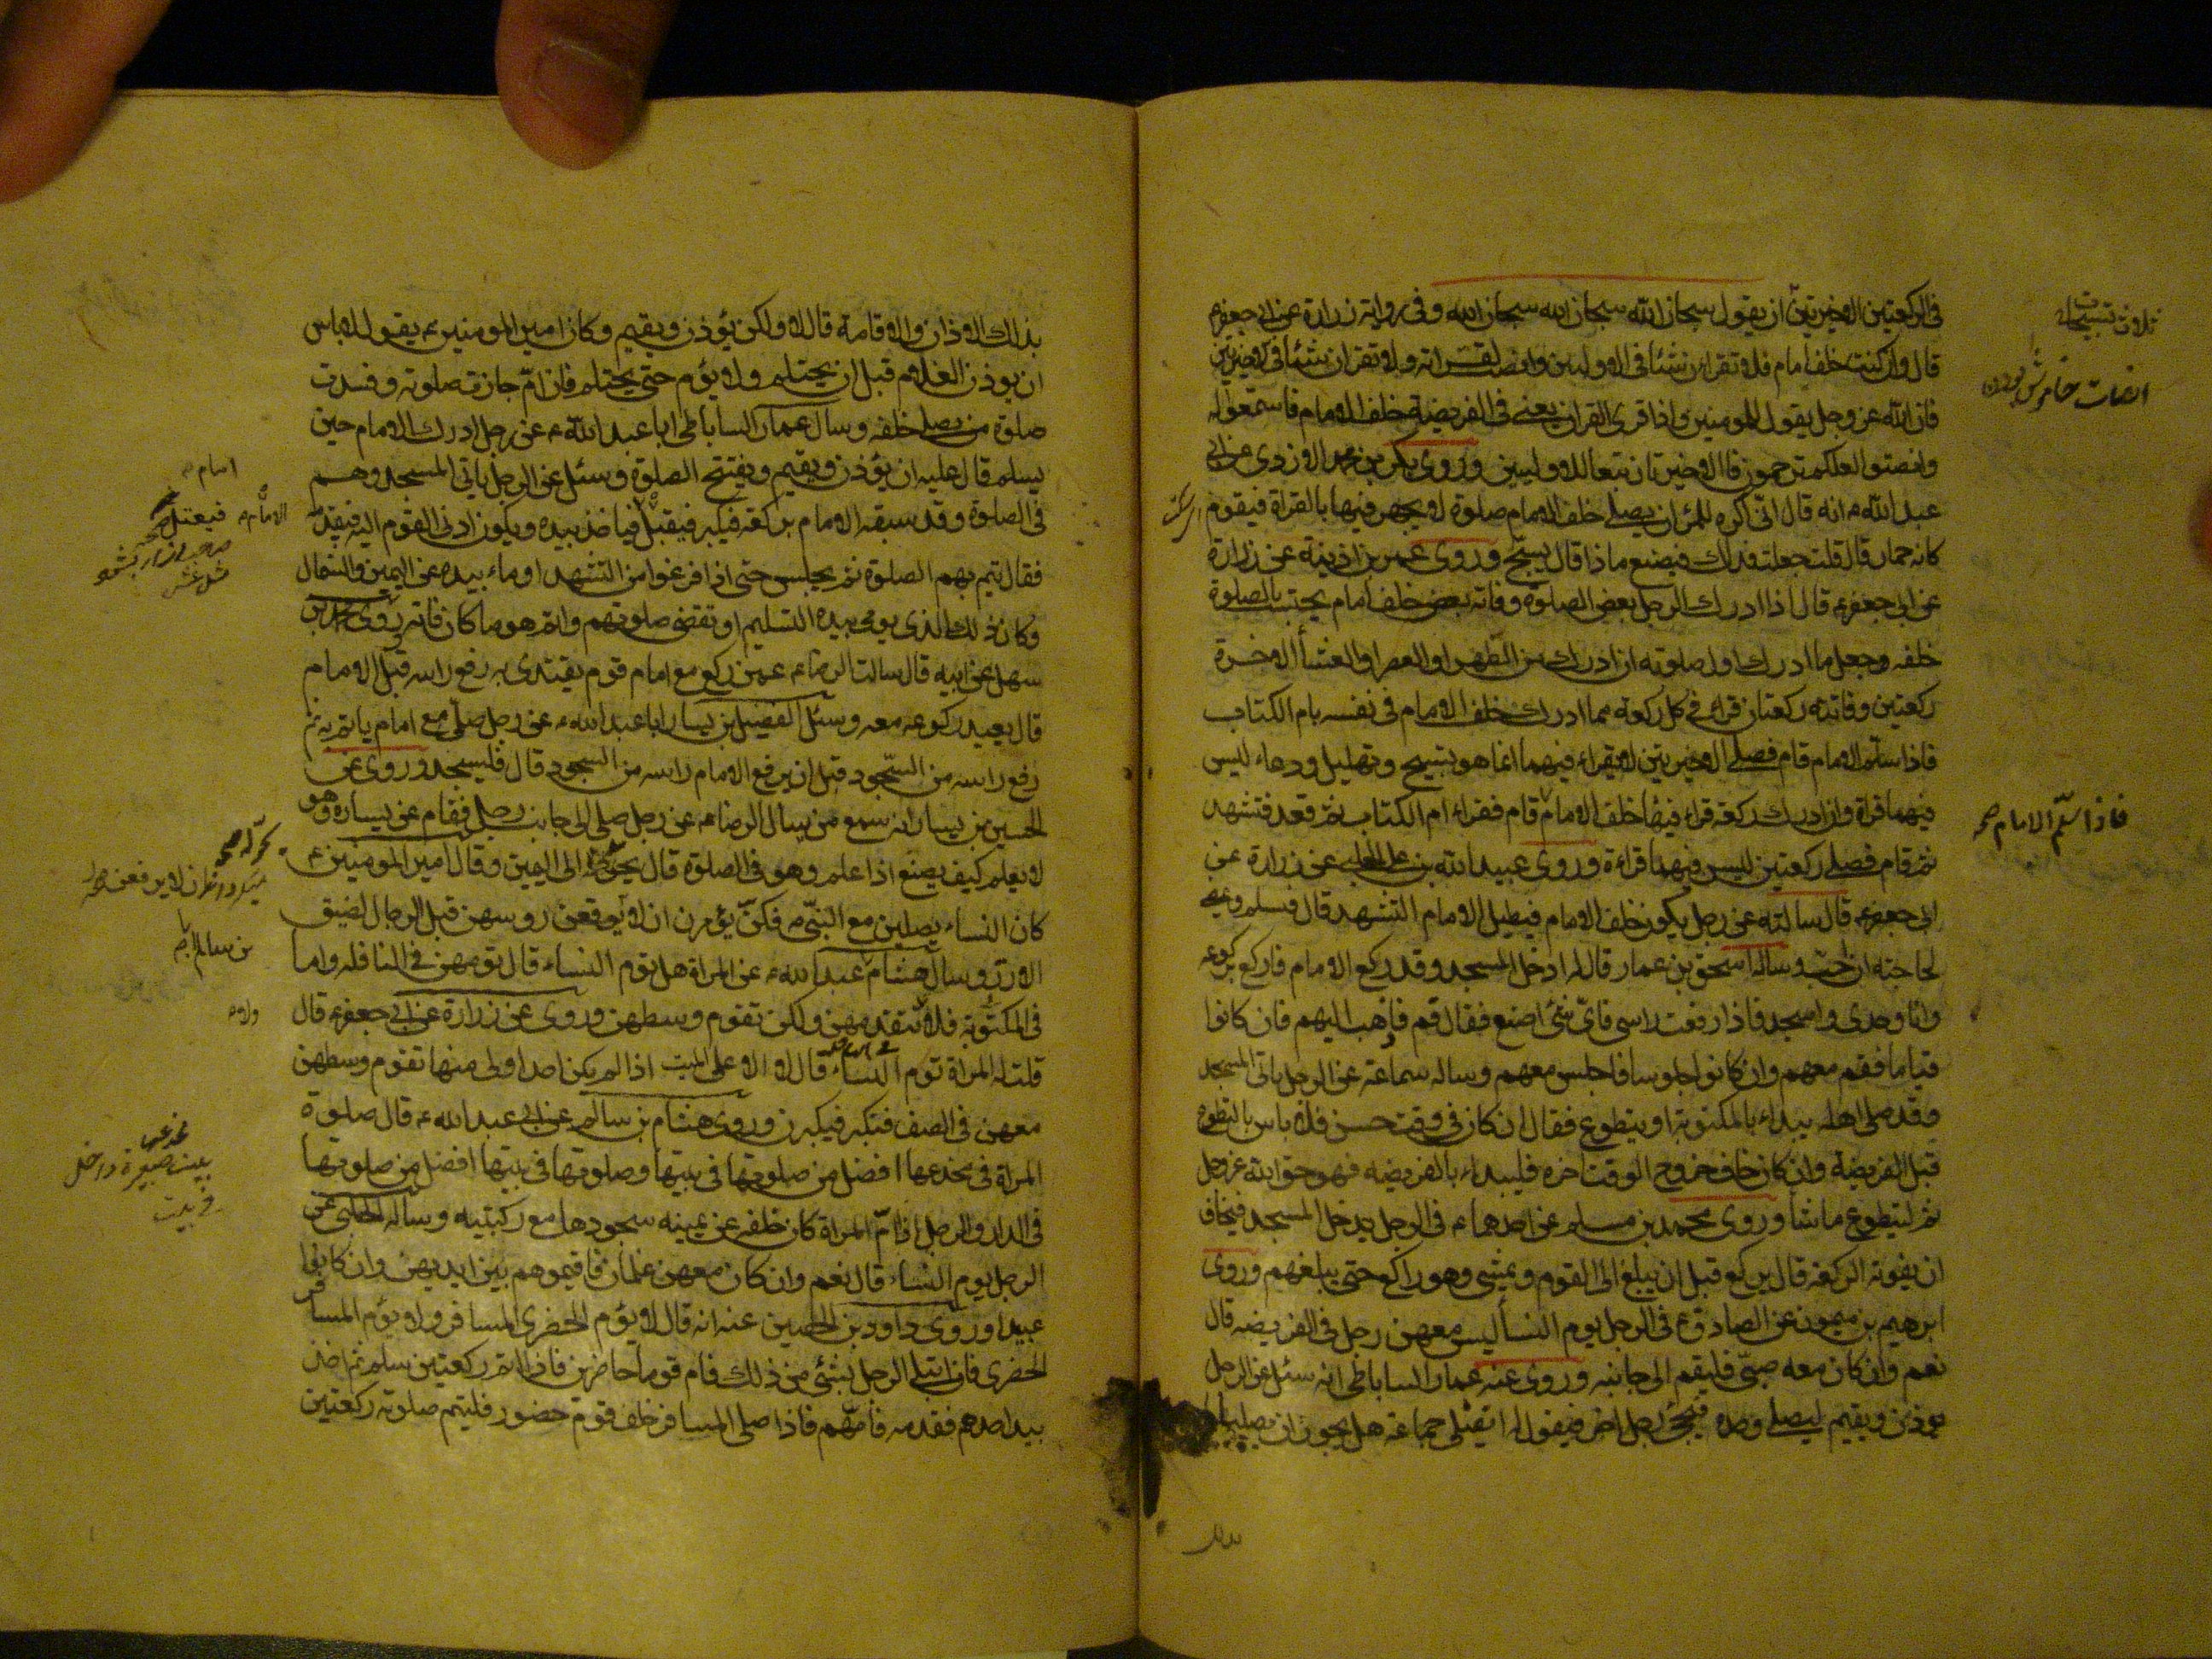 فى الركعتين الاخيرتين ان يقول سبحان الله سبحان الله سبحان الله وفى رواية زرارة عن ابى جعفر
قال وان كنت خلف امام فلا تقران شئا فى الاولتين وانصت لقراته ولا تقران شئا فى الاخيرتين
فان الله عز وجل يقول للمومنين واذا قرى القران يعنى فى الفريضة خلف الامام فاستمعوا له
وانصتوا لعلكم ترحمون فالاخيرتان تتبعا للاوليين وروى بكر بن محمد الازدى عن ابى
عبد الله انه قال انى اكره للمرء ان يصلى خلف الامام صلوة لا يجهر فيها بالقراة فيقوم
كانه حمار قال قلت جعلت فداك فيصنع ماذا قال يسبح وروى عمر بن اذينة عن زرارة
عن ابى جعفر قال اذا ادرك الرجل بعض الصلوة وفاته بعض خلف امام يحتسب بالصلوة
خلفه وجعل ما ادرك اول صلوته ان ادرك من الظهر او العصر او العشأ الاخرة
ركعتين وفاتته ركعتان قراء فى كل ركعة مما ادرك خلف الامام فى نفسه بام الكتاب
فاذا سلم الامام قام فصلى الاخيرتين لا يقراء فيهما انما هو تسبيح وتهليل ودعاء ليس
فيهما قراة وان ادرك ركعة قراء فيها خلف الامام قام فقراء ام الكتاب ثم قعد فتشهد
ثم قام فصلى ركعتين ليس فيهما قراءة وروى عبيد الله بن على الحلبى عن زرارة عن
ابى جعفر قال سالته عن رجل يكون خلف الامام فيطيل الامام التشهد قال فسلم ويمضى
لحاجته ان احب وساله اسحق بن عمار قال له ادخل المسجد وقد ركع الامام فاركع بركوعه
وانا وحدى واسجد فاذا رفعت راسى فاى شئ اصنع فقال قم فاذهب اليهم فان كانوا
قياما فقم معهم وان كانوا جلوسا فاجلس معهم وساله سماعة عن الرجل ياتى المسجد
وقد صلى اهله يبداء بالمكتوبة او يتطوع فقال ان كان فى وقت حسن فلا باس بالتطوع
قبل الفريضة وان كان خاف خروج الوقت اخره فليبداء بالفريضه فهو حق الله عز وجل
ثم ليتطوع ما شأ وروى محمد بن مسلم عن احدهما فى الرجل يدخل المسجد فيخاف
ان يفوته الركعة قال يركع قبل ان يبلغ الى القوم ويمشى وهو راكع حتى يبلغهم وروى
ابرهيم بن ميمون عن الصادق ع فى الرجل يوم النسأ ليس معهن رجل فى الفريضه قال
نعم وان كان معه صبى فليقم الى جانبه وروى عنه عمار الساباطى انه سئل عن الرجل
يوذن ويقيم ليصلى وحده فيجئ رجل اخر فيقول له اتصلى جماعة هل يجوز ان يصليا
ثلاث تسبيحات
انصات خاموش بودن
فاذا سلم الامام صح
بذلك
بذلك الاذان والاقامة قال لا ولكن يؤذن ويقيم وكان امير المومنين يقول لا باس
ان يوذن الغلام قبل ان يحتلم ولا يؤم حتى يحتلم فان ام جازت صلوته وفسدت
صلوة من يصلى خلفه وسال عمار الساباطى ابا عبد الله عن رجل ادرك الامام حين
يسلم قال عليه ان يؤذن ويقيم ويفتتح الصلوة وسئل عن الرجل ياتى المسجد وهم
فى الصلوة وقد سبقه الامام بركعة فيكبر فيقبل فياخذ بيده ويكون ادنى القوم اليه فيقدمه
فقال يتم بهم الصلوة ثم يجلس حتى اذا فرغوا من التشهد اوماء بيده عن اليمين والشمال
وكان ذلك الذى يومى بيده التسليم او تقضى صلوتهم واتم هو ما كان فاته وروى محمد بن
سهل عن ابيه قال سالت الرضا عمن ركع مع امام قوم يقتدى به رفع راسه قبل الامام
قال يعيد ركوعه معه وسئل الفضيل بن يسار ابا عبد الله عن رجل صلى مع امام ياتم به ثم
رفع راسه من السجود قبل ان يرفع الامام راسه من السجود قال فليسجد وروى عن
الحسين بن يسار انه سمع من يسال الرضا عن رجل صلى الى جانب رجل فقام عن يساره وهو
لا يعلم كيف يصنع اذا علم وهو فى الصلوة قال يحوله الى اليمين وقال امير المومنين
كان النساء يصلين مع النبى فكن يؤمرن ان لا يرفعن روسهن قبل الرجال لضيق
الازر وسال هشام عبد الله عن المراة هل يوم النساء قال تومهن فى النافله واما
فى المكتوبة فلا تتقدمهن ولكن تقوم وسطهن وروى عن زرارة عن ابى جعفر قال
قلت له المراة توم النساء قال لا الا على الميت اذا لم يكن احد اولى منها تقوم وسطهن
معهن فى الصف فتكبر فيكبرن وروى هشام بن سالم عن ابى عبد الله قال صلوة
المراة فى مخدعها افضل من صلوتها فى بيتها وصلوتها فى بيتها افضل من صلوتها
فى الدار والرجل اذا ام المراة كان خلفه عن يمينه سجودها مع ركبتيه وساله الحلبى عن
الرجل يوم النساء قال نعم وان كان معهن غلمان فاقيموهم بين ايديهن وان كانوا
عبيدا وروى داود بن الحصين عنه انه قال لا يؤم الحضرى المسافر ولا يؤم المسافر
الحضرى فان ابتلى الرجل بشئ من ذلك فام قوما حاضرين فاذا اتم ركعتين سلم ثم اخذ
بيد احدهم فقدمه فامهم فاذا صلى المسافر خلف قوم حضور فليتم صلوته ركعتين
بن سالم ابا
ولاه
مخدعها